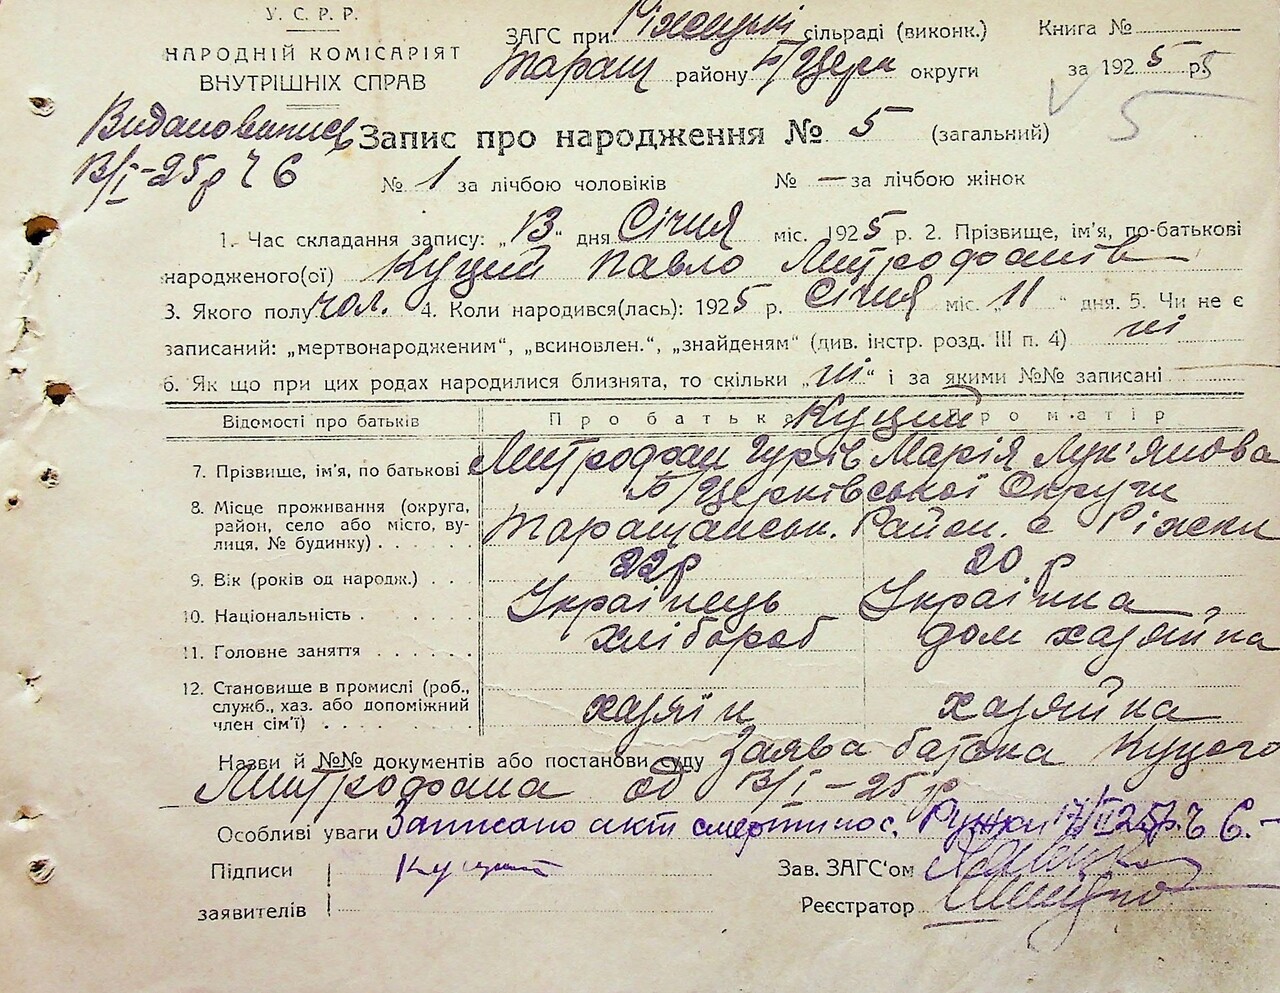 У. С. Р. Р.
НАРОДНІЙ КОМІСАРІЯТ
ВНУТРІШНІХ СПРАВ
ЗАГС при Ріжецькі сільраді (виконк.) Книга №
Таращ району Б/Церк округи за 1925 р. 5
5
Запис про народження № 5 (загальний)
13/I-25р ч 6
№ 1 за лічбою чоловіків № — за лічбою жінок
1. Час складання запису: „13“ дня Січня міс. 1925 р. 2. Прізвище, ім'я, по-батькові
народженого(ої) Куций Павло Митрофанів
3. Якого полу чол. 4. Коли народився(лась): 1925 р. Січня міс. „11“ дня. 5. Чи не є
записаний: „мертвонародженим“, „всиновлен.“, „знайденям“ (див. інстр. розд. III п. 4) ні
6. Як що при цих родах народилися близнята, то скільки „ні“ і за якими №№ записані
Відомості про батьків Про батька Куций Про матір
7. Прізвище, ім'я, по батькові Митрофан Гурів Марія Лук'янова
8. Місце проживання (округа, район, село або місто, вулиця, № будинку) Б/Церківської Округи
Таращанськ. Район. с Ріжки
9. Вік (років од народж.) 22р 20 р
10. Національність Українець Українка
11. Головне заняття хлібороб дом хазяйка
12. Становище в промислі (роб., служб., хаз. або допоміжний член сім'ї) хазяїн хазяйка
Назви й №№ документів або постанови суду Заява батька Куцого
Митрофана од 13/I-25р
Особливі уваги Записано акт смерти пос. 17/II 25р. ч 6.-
Підписи Куций Зав. ЗАГС'ом
заявителів Реєстратор